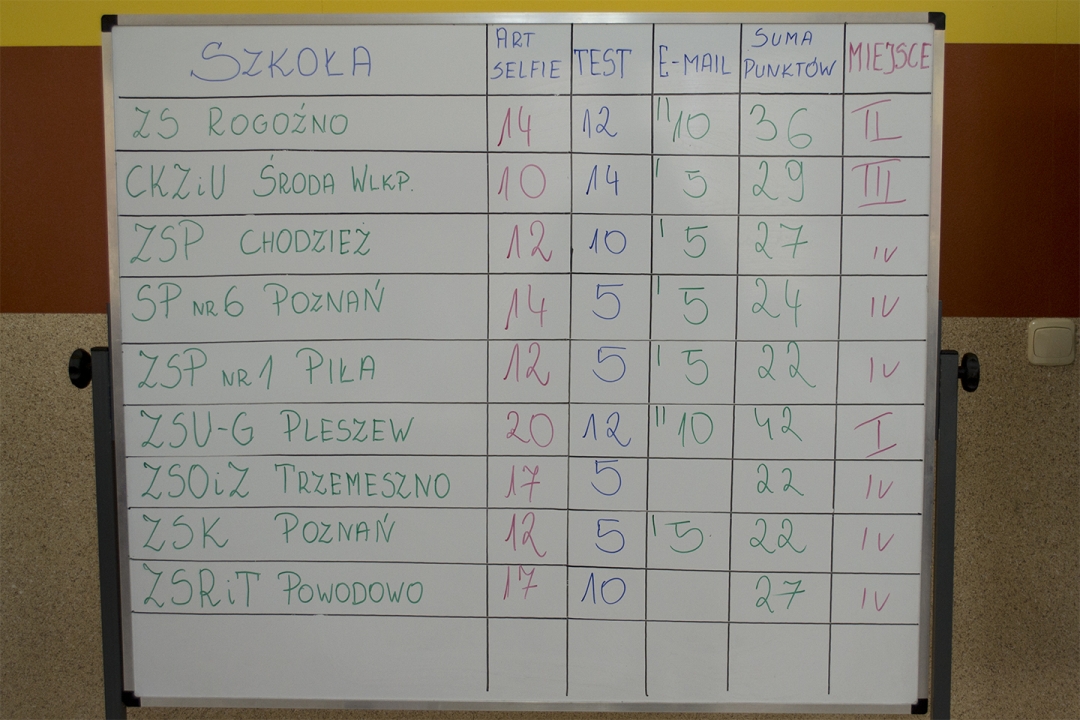 SZKOŁA ART SELFIE TEST E-MAIL SUMA PUNKTÓW MIEJSCE
ZS ROGOŹNO 14 12 "10 36 II
CKZiU ŚRODA WLKP. 10 14 '5 29 III
ZSP CHODZIEŻ 12 10 '5 27 IV
SP NR 6 POZNAŃ 14 5 '5 24 IV
ZSP NR 1 PIŁA 12 5 '5 22 IV
ZSU-G PLESZEW 20 12 "10 42 I
ZSOiZ TRZEMESZNO 17 5 22 IV
ZSK POZNAŃ 12 5 '5 22 IV
ZSRiT POWODOWO 17 10 27 IV